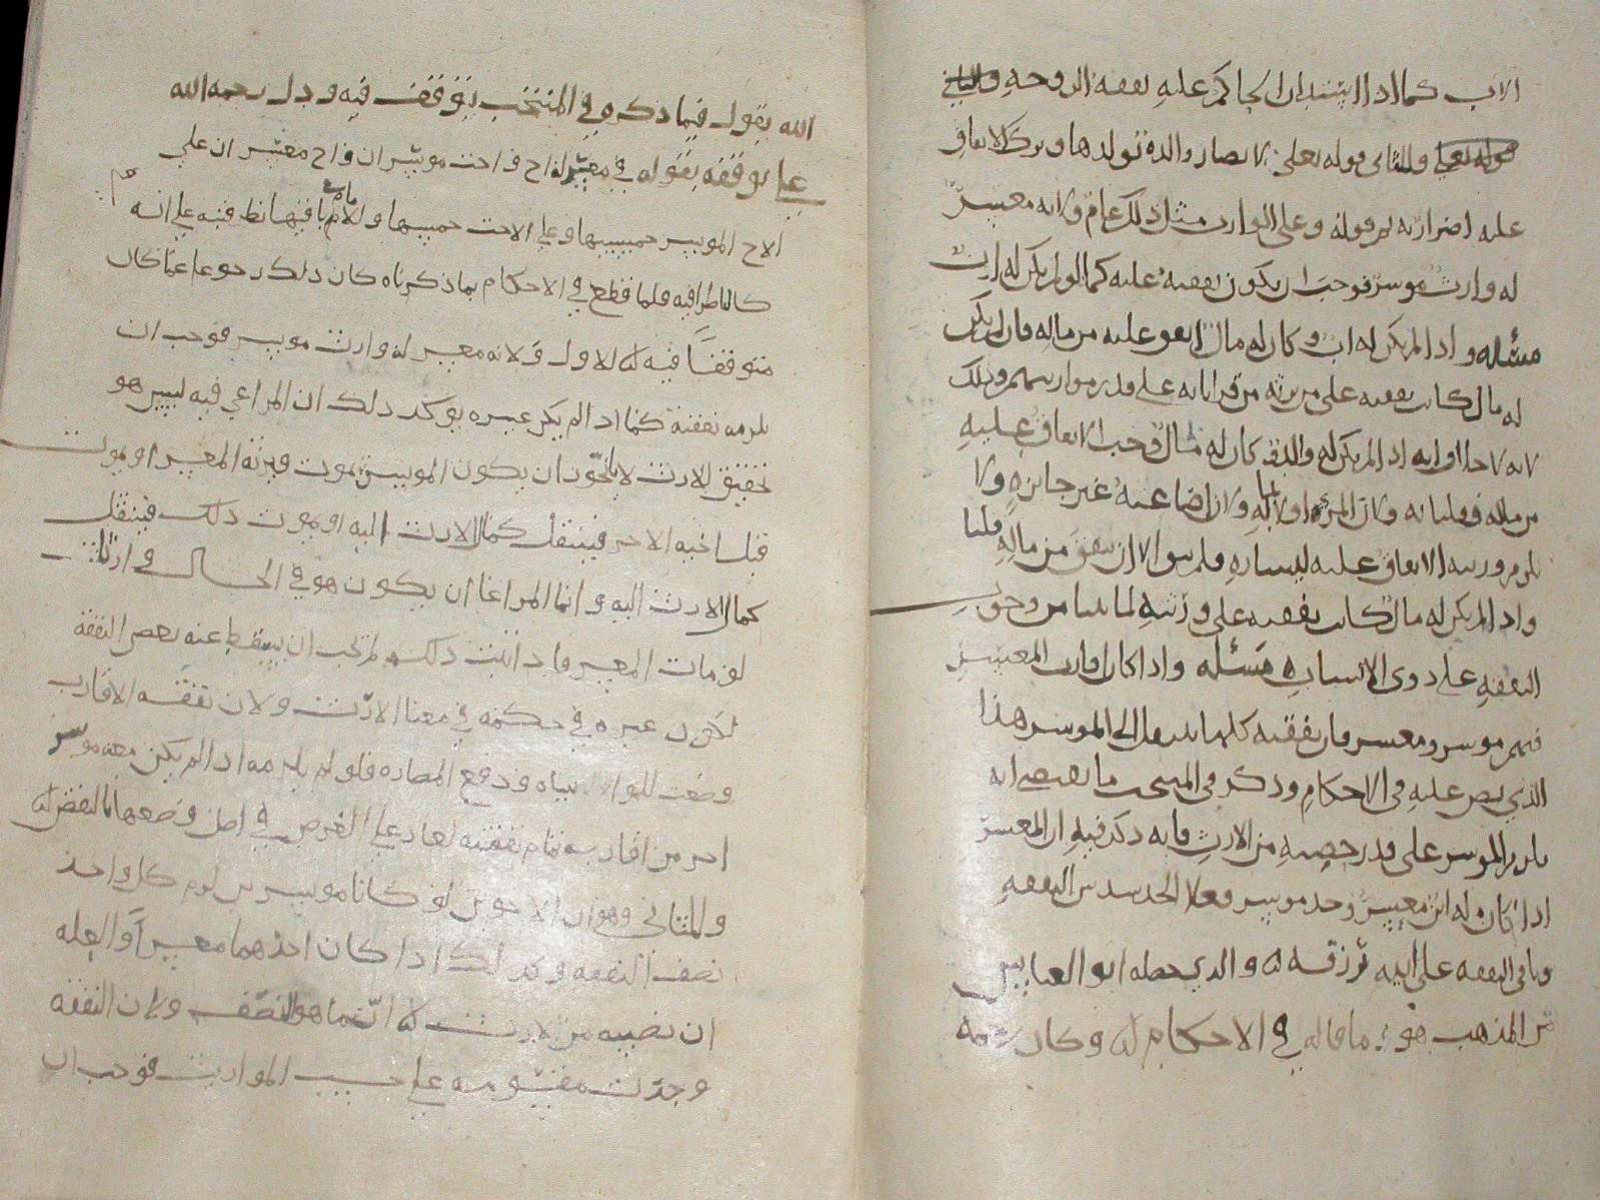 الاب كما اذا استدان الحاكم عليه نفقه الزوجه
وللثاني قوله تعلى لا تضار والدة بولدها وترك الانفاق
عليه اضرار به ثم قوله وعلى الوارث مثل ذلك عام ولانه معسر
له وارث موسر فوجب ان يكون نفقته عليه كما لو لم يكن له ابن
مسئله واذا لم يكن له اب وكان له مال انفق عليه من ماله فان لم يكن
له مال كانت نفقته على من يرثه من قراباته على قدر مواريثهم وذلك
لانه لا خلاف انه اذا لم يكن له والد وكان له مال وجب الانفاق عليه
من ماله فقلنا به ولان المرء اولا بماله ولان اضاعته غير جائزه ولا
يلزم ورثته الانفاق عليه ليساره فلم يبق الا ان ينفق من ماله قلنا
واذا لم يكن له مال كانت نفقته على ورثته لما بينا من وجوب
النفقه على ذوي الانساب مسئله واذا كان اقارب المعسر
فيهم موسر ومعسر فان نفقته كلها تنتقل الى الموسر هذا
الذي نص عليه في الاحكام وذكر في المنتخب ما يقتضي انه
يلزم الموسر على قدر حصته من الارث فانه ذكر فيه ان المعسر
اذا كان له ابن معسر وجد موسر فعلا الجد سدس النفقه
وباقي النفقه على ابنه ترزقه له والذي حصله ابو العباس
من المذهب هو ما قاله في الاحكام له وكان رحمه
الله يقول فيما ذكره في المنتخب توقف فيه ودل رحمه الله
على توقفه بقوله في معسر له اخ واخت موسران واخ معسر ان على
الاخ الموسر خمسيها وعلى الاخت خمسها والامام باقيها نظر فيه على انه
كالناظر فيه فلما قطع في الاحكام بما ذكرناه كان ذلك رجوعا عما كان
متوقفا فيه له الاول ولانه معسر له وارث موسر فوجب ان
يلزمه نفقته كما اذا لم يكن غيره يوكد ذلك ان المراعي فيه ليس هو
تحقيق الارث لانا نجوّز ان يكون الموسر يموت ويرثه المعسر او يموت
قبل اخيه الاخر فينتقل كمال الارث اليه او يموت ذلك فينتقل
كمال الارث اليه وانما المراعا ان يكون هو في الحال في ارثه
لو مات المعسر فاذا ثبت ذلك لم يجب ان يسقط عنه بعض النفقه
لكون غيره في حكمه في معنا الارث ولان نفقه الاقارب
وضعت للمواساه ودفع المضاره فلو لم يلزمه اذا لم يكن معه موسر
اخر من اقاربه تمام نفقته لعاد على الغرض في اصل وضعها بالنقض له
وللثاني وهو ان الاخوين لو كانا موسرين لزم كل واحد
نصف النفقه وكذلك اذا كان احدهما معسرا والعله
ان نصيبه من الارث له انما هو النصف ولان النفقه
وجدت مقسومه على حسب المواريث فوجب ان